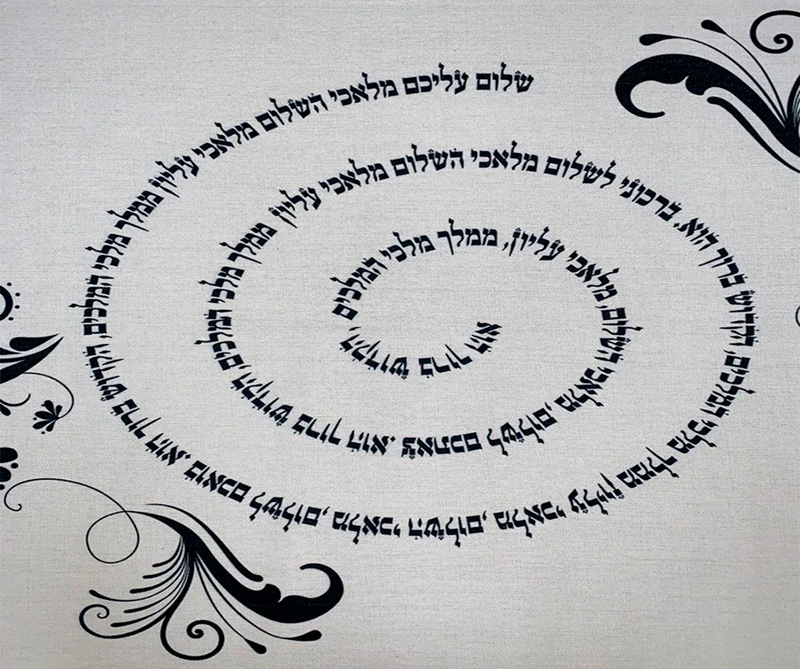 שלום עליכם מלאכי השלום מלאכי עליון ממלך מלכי המלכים, הקדוש ברוך הוא. בואכם לשלום, מלאכי השלום, מלאכי עליון ממלך מלכי המלכים, הקדוש ברוך הוא. ברכוני לשלום מלאכי השלום מלאכי עליון ממלך מלכי המלכים, הקדוש ברוך הוא. צאתכם לשלום, מלאכי השלום, מלאכי עליון, ממלך מלכי המלכים, הקדוש ברוך הוא